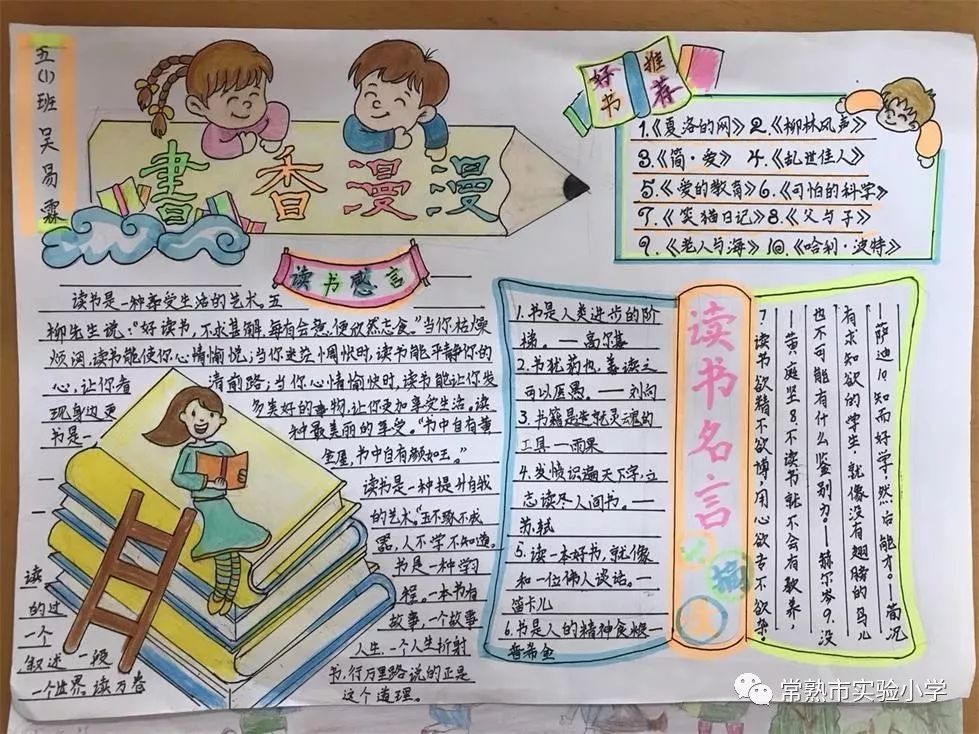 五(1)班 吴易霖
書香漫漫
好书推荐
1.《夏洛的网》2.《柳林风声》
3.《简·爱》 4.《乱世佳人》
5.《爱的教育》6.《可怕的科学》
7.《笑猫日记》8.《父与子》
9.《老人与海》10.《哈利·波特》
读书感言
读书是一种享受生活的艺术。五
柳先生说:“好读书,不求甚解,每有会意,便欣然忘食。”当你枯燥
烦闷,读书能使你心情愉悦;当你迷茫惆怅时,读书能平静你的
心,让你看清前路;当你心情愉快时,读书能让你发
现身边更多美好的事物,让你更加享受生活。读
书是一种最美丽的享受。“书中自有黄
金屋,书中自有颜如玉。”
读书是一种提升自我
的艺术。“玉不琢不成
器,人不学不知道。”
读书是一种学习
的过程。一本书有
一个故事,一个故事
叙述一段人生,一个人生折射
一个世界。读万卷书,行万里路说的正是
这个道理。
读书名言
1.书是人类进步的阶
梯。—高尔基
2.书犹药也,善读之
可以医愚。—刘向
3.书籍是造就灵魂的
工具—雨果
4.发愤识遍天下字,立
志读尽人间书。—
苏轼
5.读一本好书,就像
和一位伟人谈话。—
笛卡儿
6.书是人的精神食粮—
普希金
7读书欲精不欲博,用心欲专不欲杂
—黄庭坚8.不读书就不会有教养,
也不可能有什么鉴别力。—赫尔岑9.没
有求知欲的学生,就像没有翅膀的鸟儿
—萨迪10.知而好学,然后能才。—荀况
常熟市实验小学